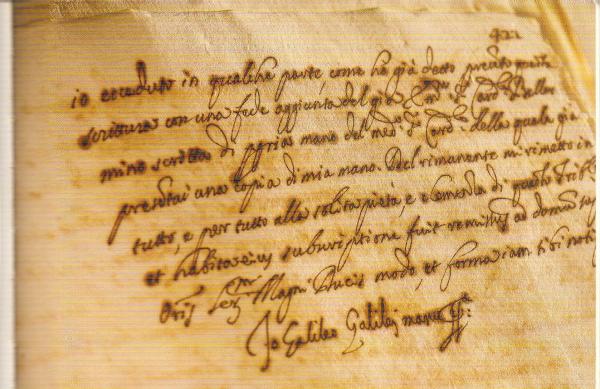 422
io ecceduto in qualche parte, come ho già detto presento questa
scrittura con una fede aggiunta del già Emmo Sr Card. le Bellar
mino scritta di propria mano del medo Sr Card. le della quale già
presentai una copia di mia mano. Del rimanente mi rimetto in
tutto, e per tutto alla solita pietà, e clemenza di questo Trible
et habita eius subscriptione fuit remissus ad domum
Oris Sermi Magni Ducis modo, et forma iam sibi notif
Io Galileo Galilei manu pa